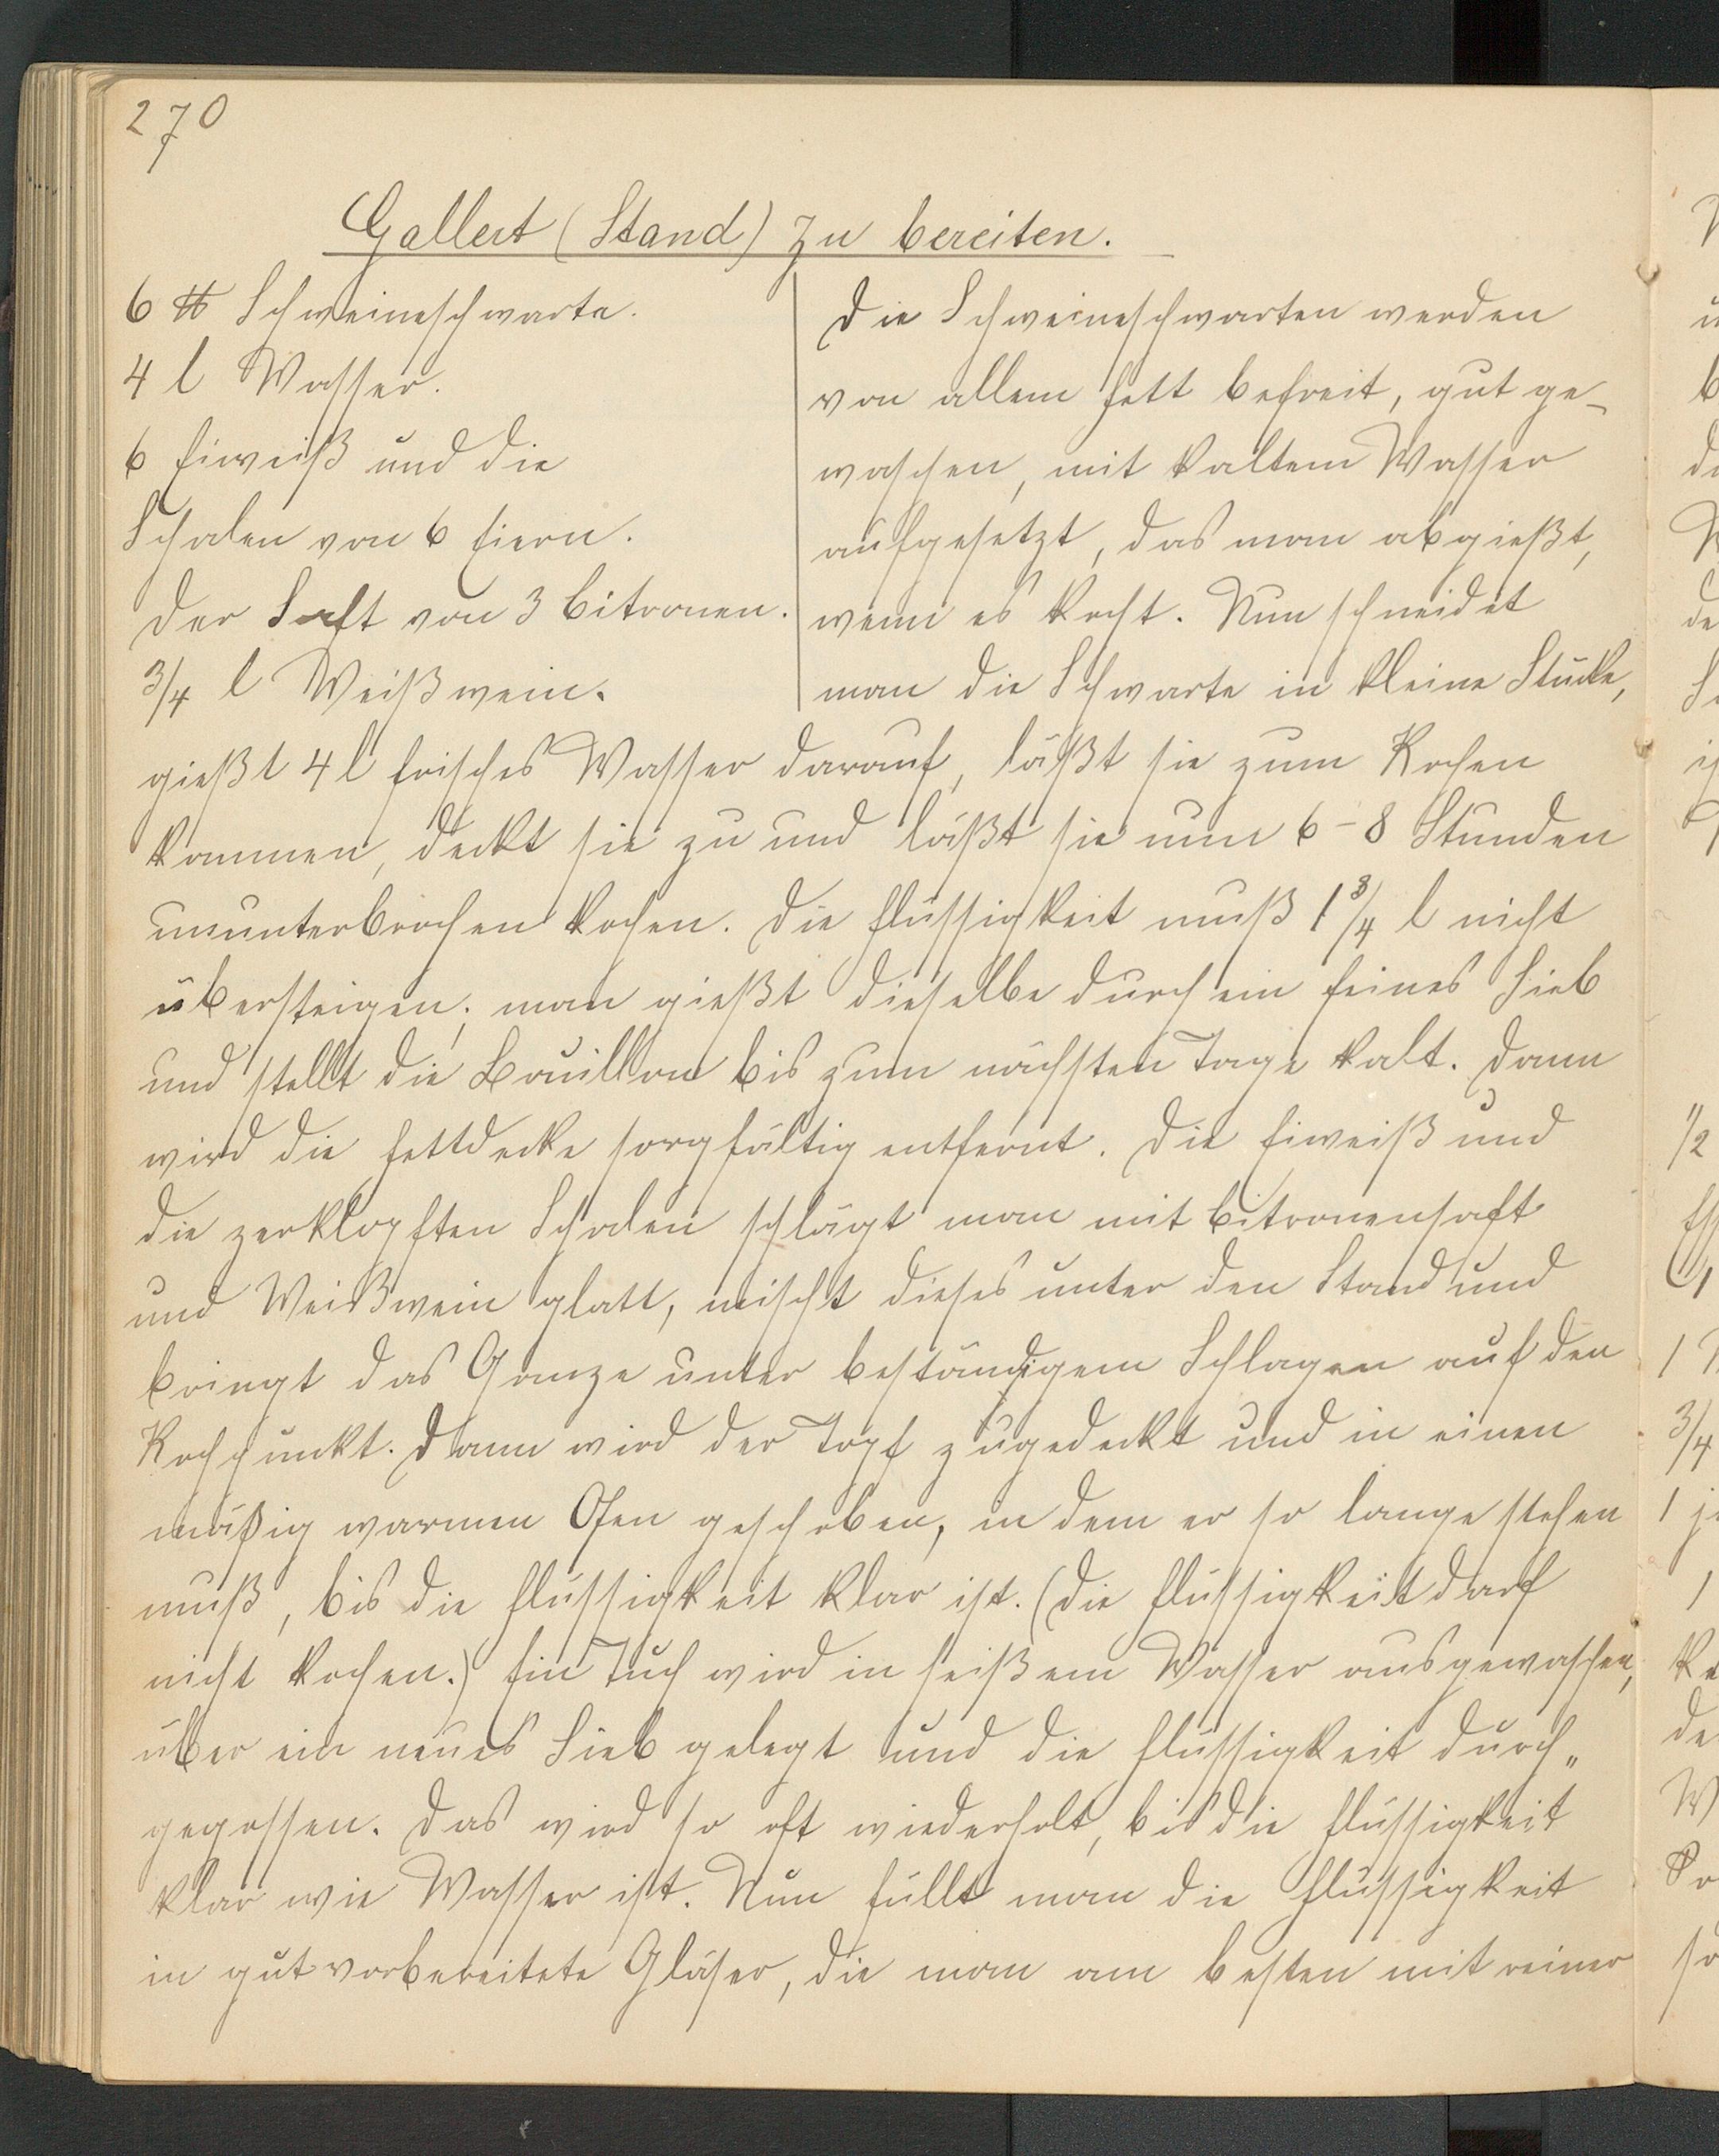 270
Gallert (Stand) zu bereiten.
6 ℔ Schweineschwarte.
4 l Wasser.
6 Eiweiß und die
Schalen von 6 Eiern.
Der Saft von 3 Citronen.
3/4 l Weißwein.
Die Schweineschwarten werden
von allem Fett befreit, gut ge-
waschen, mit kaltem Wasser
aufgesetzt, das man abgießt,
wenn es kocht. Nun schneidet
man die Schwarte in kleine Stücke,
gießt 4 l frisches Wasser darauf, läßt sie zum Kochen
kommen, deckt sie zu und läßt sie nun 6-8 Stunden
ununterbrochen kochen. Die Flüssigkeit muß 1 3/4 l nicht
übersteigen; man gießt dieselbe durch ein feines Sieb
und stellt die Bouillon bis zum nächsten Tage kalt. Dann
wird die Fettdecke sorgfältig entfernt. Die Eiweiß und
die zerklopften Schalen schlägt man mit Citronensaft
und Weißwein glatt, mischt dieses unter den Stand und
bringt das Ganze unter beständigem Schlagen auf den
Kochpunkt. Dann wird der Topf zugedeckt und in einen
mäßig warmen Ofen geschoben, in dem er so lange stehen
muß, bis die Flüssigkeit klar ist. (Die Flüssigkeit darf
nicht kochen.) Ein Tuch wird in heißem Wasser ausgewaschen,
über ein neues Sieb gelegt und die Flüssigkeit durch„
gegossen. Das wird so oft wiederholt, bis die Flüssigkeit
klar wie Wasser ist. Nun füllt man die Flüssigkeit
in gut vorbereitete Gläser, die man am besten mit reiner